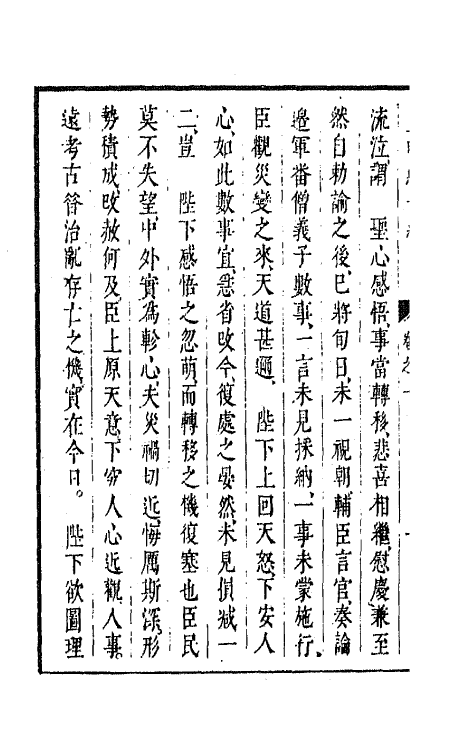 流泣謂　聖心感悟、事當轉移、悲喜相繼、慰慶兼至
然自勅諭之後、已將旬日、未一視朝、輔臣言官、奏論
邉軍番僧義子數事、一言未見採納、一事未蒙施行、
臣觀災變之來、天道甚邇、　陛下上回天怒、下安人
心、如此數事、宜急省改、今復處之晏然、未見損减一
二、豈　陛下感悟之忽萌、而轉移之機復塞也、臣民
莫不失望、中外實爲軫心、夫災禍切近、悔厲斯深、形
勢積成、改赦何及、臣上原天意、下察人心、近觀人事、
遠考古昝治亂存亡之機、實在今日。　陛下欲圖理
卷之一